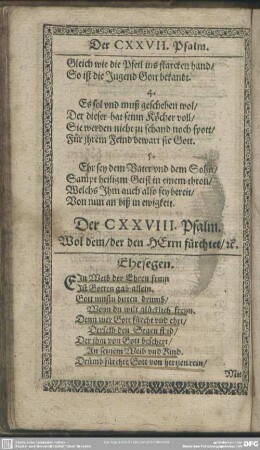 Der CXXVII. Psalm.
Gleich wie die Pfeil ins starcken hand/
So ist die Jugend Gott bekandt.
4.
Es sol vnd muß geschehen wol/
Der dieser hat seinn Köcher voll/
Sie werden nicht zu schand noch spott/
Für jhrem Feind bewart sie Gott.
5.
Ehr sey dem Vater vnd dem Sohn/
Sampt heiligm Geist in einem thron/
Welchs Jhm auch also sey bereit/
Von nun an biß in ewigkeit.
Der CXXVIII. Psalm.
Wol dem/der den HErrn fürchtet/ꝛc.
Ehesegen.
EIn Weib der Ehren fromm
Ist Gottes gab allein.
Gott mustu bitten drumb/
Wenn du wilt glücklich freyn.
Denn wer Gott fürcht vnd ehrt/
Derselb den Segen
Der jhm von Gott beschert/
An seinem Weib vnd Kind.
Drümb fürchte Gott von hertzen rein/
Mit